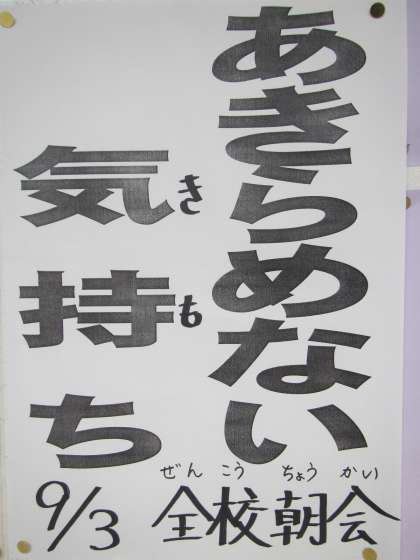 あきらめない
気持ち
きも
9/3 全校朝会
ぜんこうちょうかい